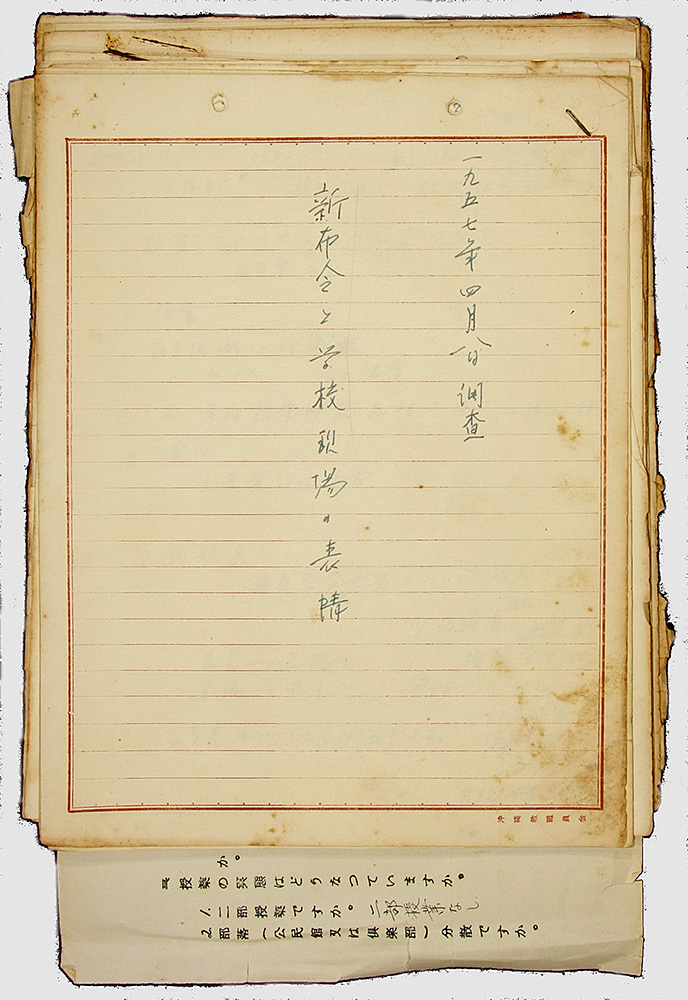 一九五七年四月八日調査
新布令と学校現場の表情
沖縄教職員会
か。
授業の実態はどうなつていますか。
1.二部授業ですか。二部授業なし
2.部落(公民館又は倶楽部)分散ですか。